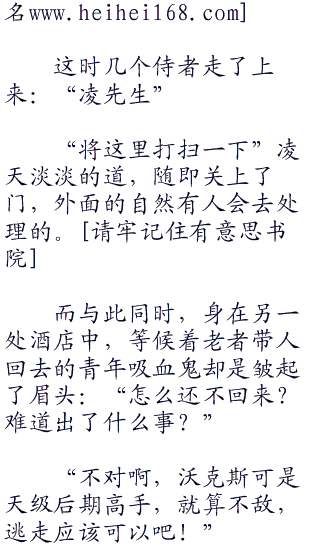 名www.heihei168.com]
这时几个侍者走了上
来：“凌先生”
“将这里打扫一下”凌
天淡淡的道，随即关上了
门，外面的自然有人会去处
理的。[请牢记住有意思书
院]
而与此同时，身在另一
处酒店中，等候着老者带人
回去的青年吸血鬼却是皱起
了眉头：“怎么还不回来？
难道出了什么事？”
“不对啊，沃克斯可是
天级后期高手，就算不敌，
逃走应该可以吧！”